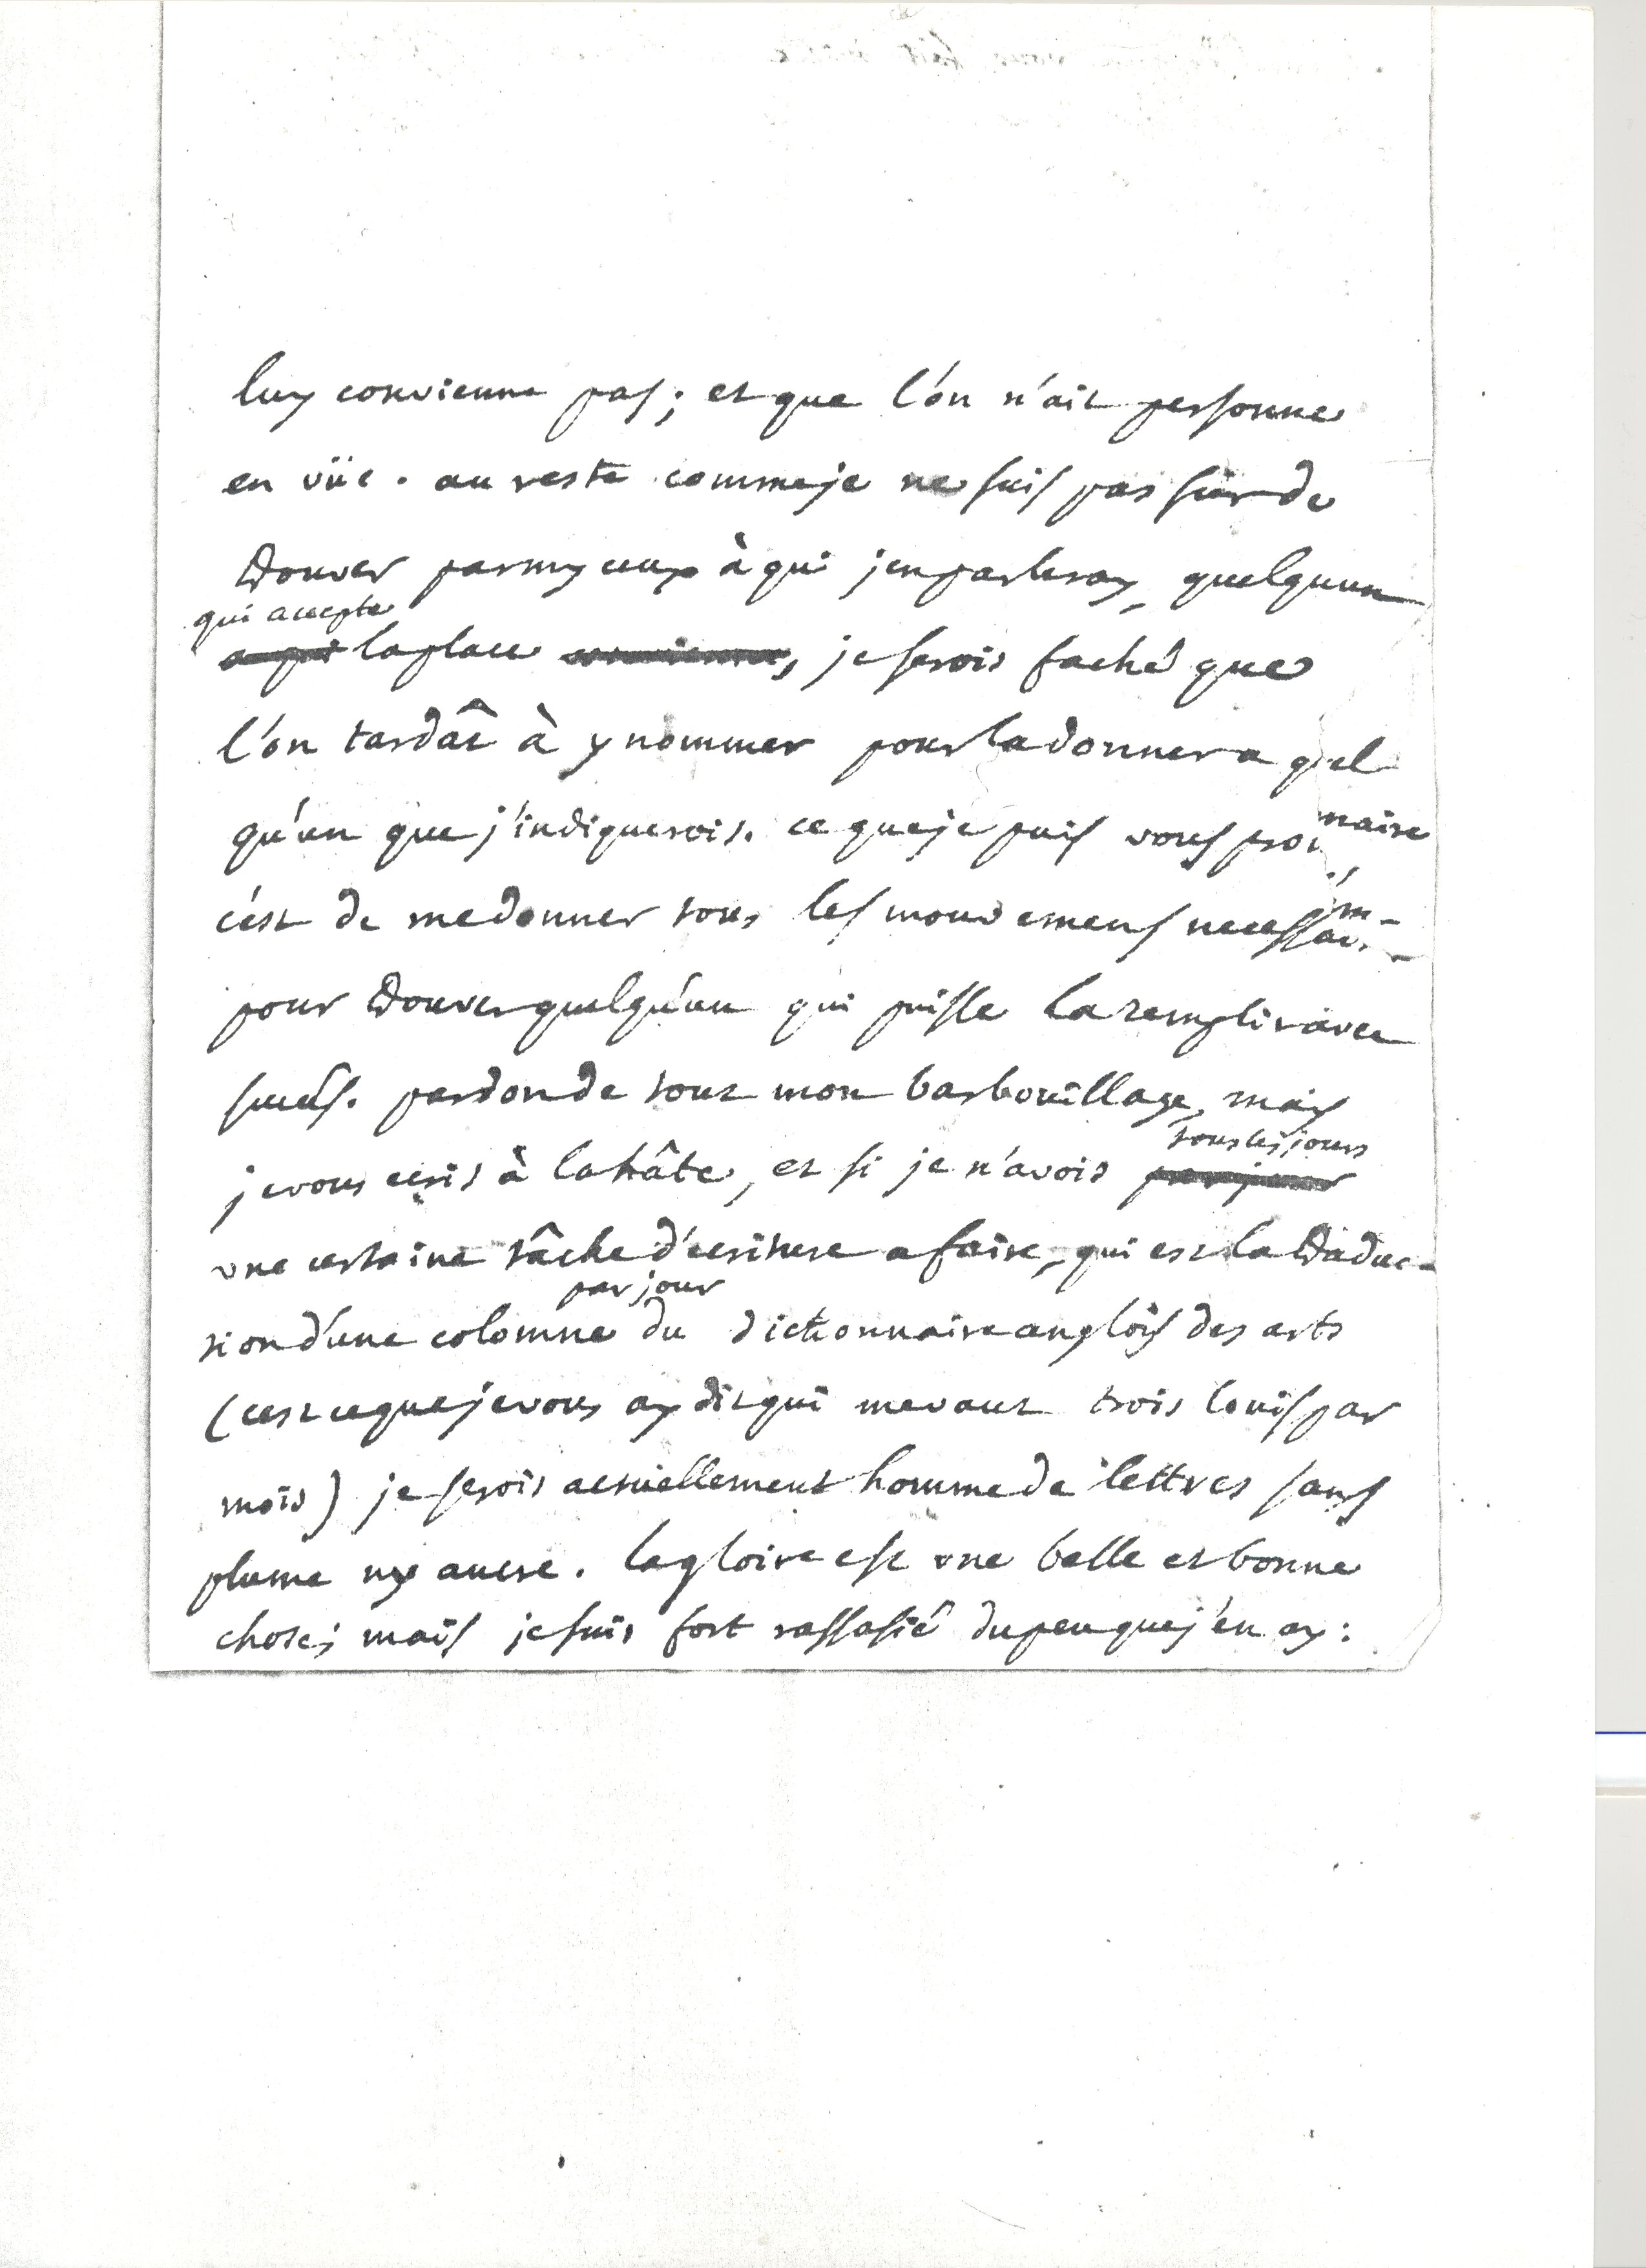 luy convienne pas; et que l'on n'ait personne
en vüe. au reste comme je ne suis pas sûr de
trouver parmy ceux à qui j'en parleray, quelquun
qui accepte
a qui la place convienne, je serois faché que
l'on tardât à y nommer pour la donner a quel
qu'un que j'indiquerois. ce que je puis vous pro
c'est de me donner tous les mouvemens necessai
pour trouver quelqu'un qui puisse la remplir avec
succès. pardon de tout mon barbouillage, mais
tous les jours
je vous ecris à la hâte, et si je n'avois par jour
une certaine tâche d'ecriture a faire, qui est la traduc-
par jour
tion d'une colomne du dictionnaire anglois des arts
(c'est ce que je vous ay dit qui me vaut trois louis par
mois) je serois actuellement homme de lettres sans
plume ny ancre. la gloire est une belle et bonne
chose; mais je suis fort rassasié du peu que j'en ay: